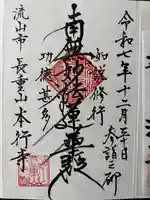 令和七年十二月三十日
参詣之砌
如説修行
南無妙法蓮華経
功徳甚多
流山市 長崇山 本行寺